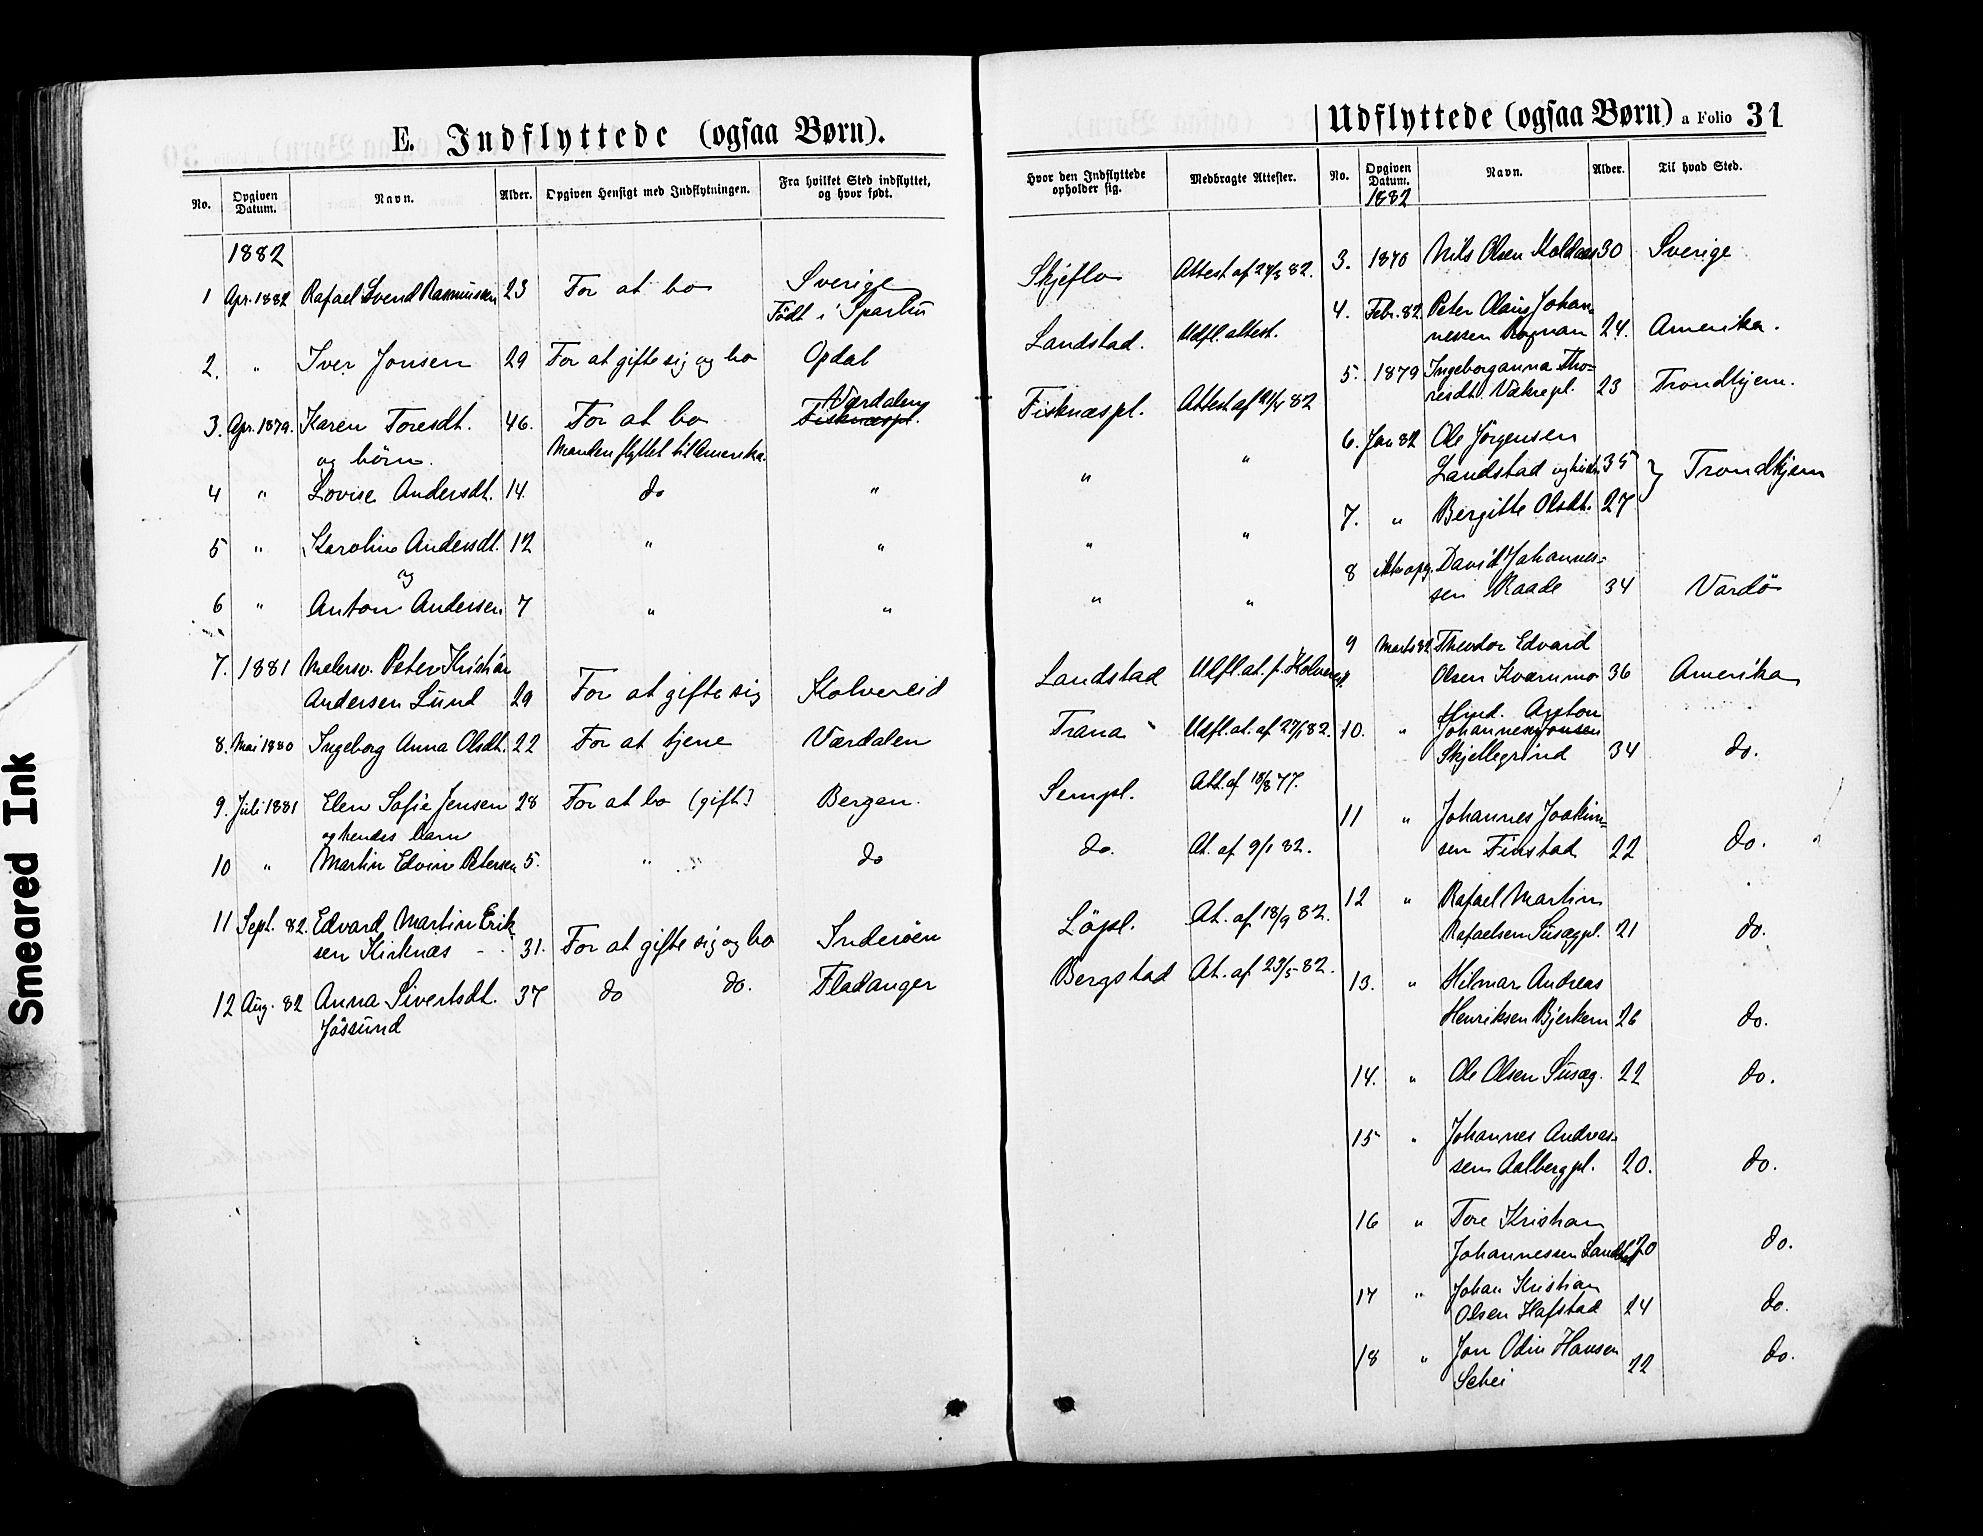 E. Indflyttede (ogsaa Børn).
No. Opgiven Datum. Navn. Alder. Opgiven Hensigt med Indflytningen. Fra hvilket Sted indflyttet, og hvor født. Hvor den Indflyttede opholder sig. Medbragte Attester.
1882
1 Apr. 1882 Rafael Svend Rasmussen 23 For at bo Sverige Skjeflo Attest af 82.
Født i Sparbu
2. " Iver Jonsen 29 For at gifte sig og bo Opdal Landstad. Udfl. attest.
Værdalen
3. Apr. 1879. Karen Toresdt. 46. For at bo Fisknæspl. Fisknæspl. Attest af 82
og børn. Manden flyttet til Amerika. " "
4 " Lovise Andersdt. 14. do "
5 " Karoline Andersdt. 12 " " " "
og
6 " Anton Andersen 7 " " " "
7. 1881 Peter Kristian
Andersen Lund 29 For at gifte sig Kolvereid Landstad Udfl. at. f. Kolvereid.
8. Mai 1880 Ingeborg Anna Olsdt. 22 For at tjene Værdalen Trana Udfl. at. af 27/1 82.
9. Juli 1881 Elen Sofie Jensen 28 For at bo (gift) Bergen. Sempl. Att. af 18/8 77.
og hendes barn
10 " Martin Edvin Petersen 5. " " do do. At. af 9/1 82.
11 Sept. 82. Edvard Martin Erik-
sen Kirknæs - - 31. For at gifte sig og bo Inderöen Löpl. At. af 18/9 82.
12 Aug. 82 Anna Sivertsdt. 37 do do. Fladanger Bergstad At. af 23/5 82.
Jössund
Udflyttede (ogsaa Børn) a Folio 31
No. Opgiven Datum. Navn. Alder. Til hvad Sted.
1882
3. 1870 Nils Olsen Moldaas 30 Sverige
4. Febr. 82. Peter Olaus Johan-
nessen Rognan 24. Amerika.
5. 1879 Ingeborganna Tho-
resdt. Vækrepl. 23 Trondhjem.
6. Jan 82 Ole Jörgensen
Landstad og hustr. 35 } Trondhjem
7. " Bergitte Olsdt. 27
8 David Johannes-
sen Raade 34 Vardö
9 Marts 82 Theodor Edvard
Olsen Kvarnmo 36 Amerika
Anton
10. " Johannes Jonsen
Skjellegrind 34 do.
11 " Johannes Joakim-
sen Finstad 22 do. "
12 " Rafael Martin
Rafaelsen Susægpl. 21 do.
13. " Hilmar Andreas
Henriksen Bjerkem 26 do.
14. " Ole Olsen Susæg. 22 do.
15 " Johannes Andreas-
sen Aalbergpl. 20. do.
16 " Tore Kristian
Johannessen Landstad 20 do.
17 " Johan Kristian
Olsen Hafstad 24 do.
18 " Jon Odin Hansen
Schei 22 do.
Smeared Ink